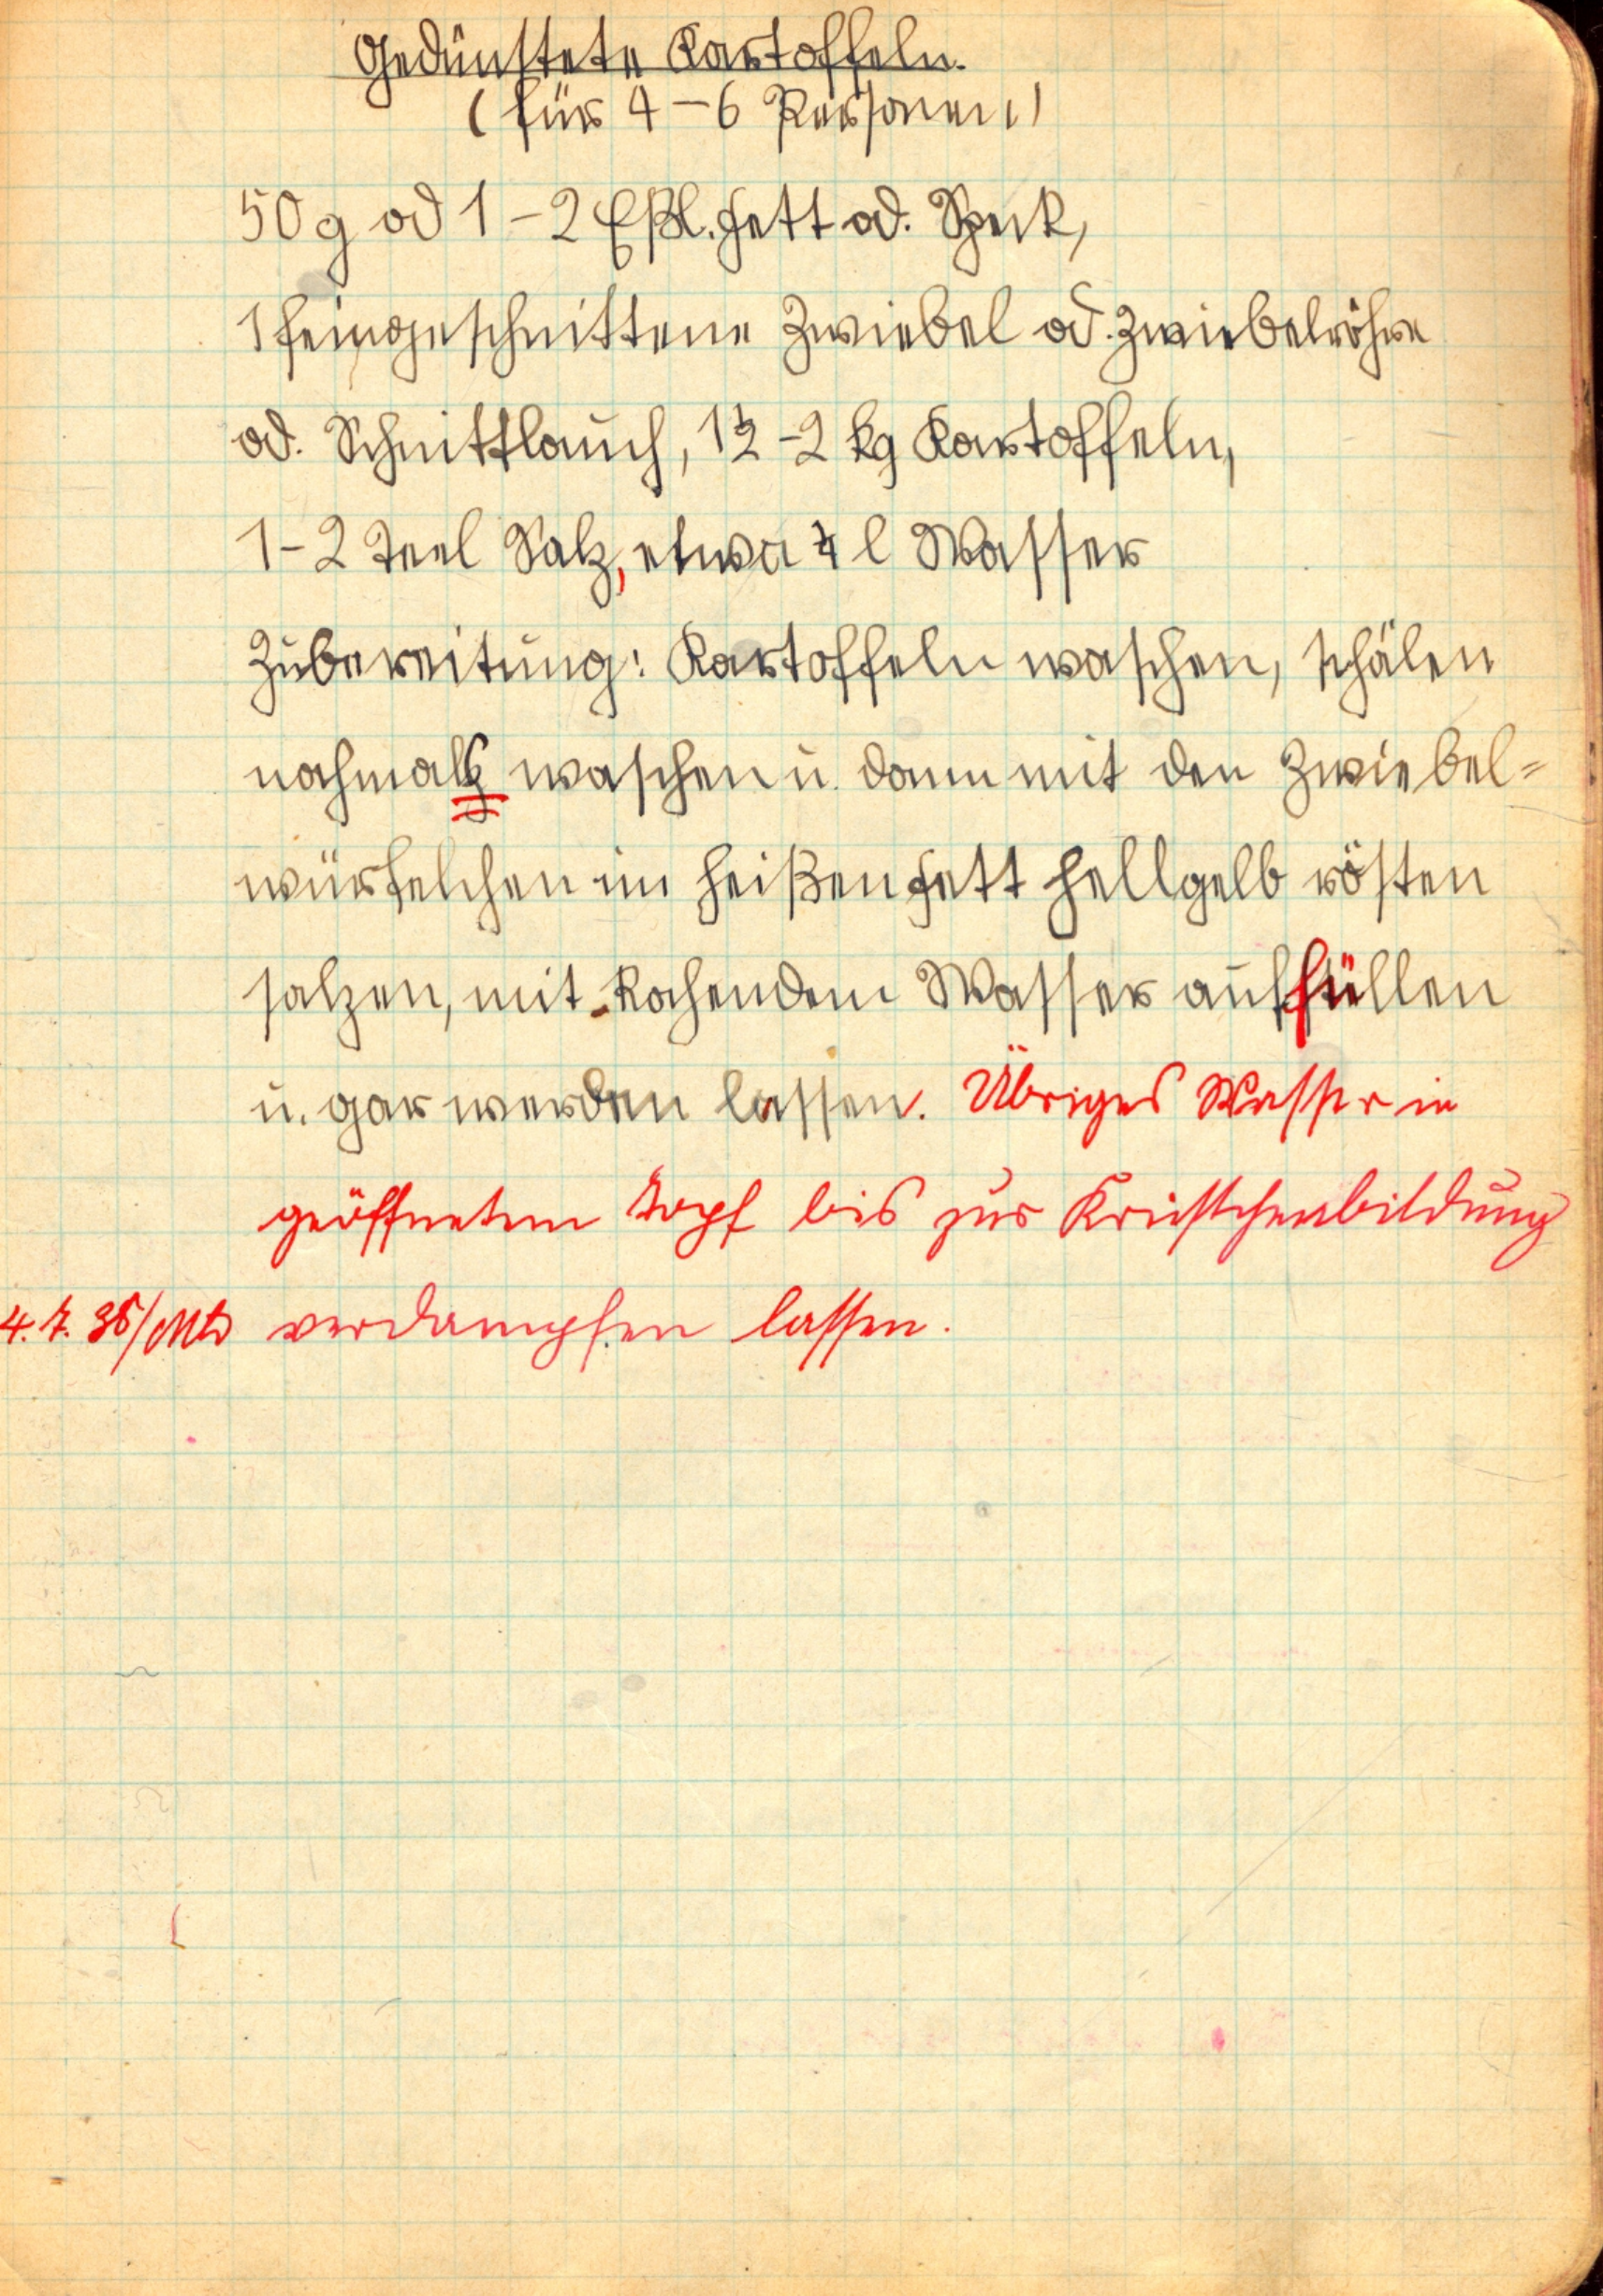 Gedünstete Kartoffeln.
(für 4-6 Personen)
50 g od 1-2 Eßl. Fett od. Speck,
1 feingeschnittene Zwiebel od. Zwiebelröhre
od. Schnittlauch, 1½-2 kg Kartoffeln,
1-2 Teel Salz, etwa ¼ l Wasser
Zubereitung: Kartoffeln waschen, schälen
nochmals waschen u. dann mit den Zwiebel=
würfelchen im heißen Fett hellgelb rösten
salzen, mit kochendem Wasser auffüllen
u. gar werden lassen. Übriges Wasser in
geöffnetem Topf bis zur Krüstchenbildung
4.7.35/ verdampfen lassen.